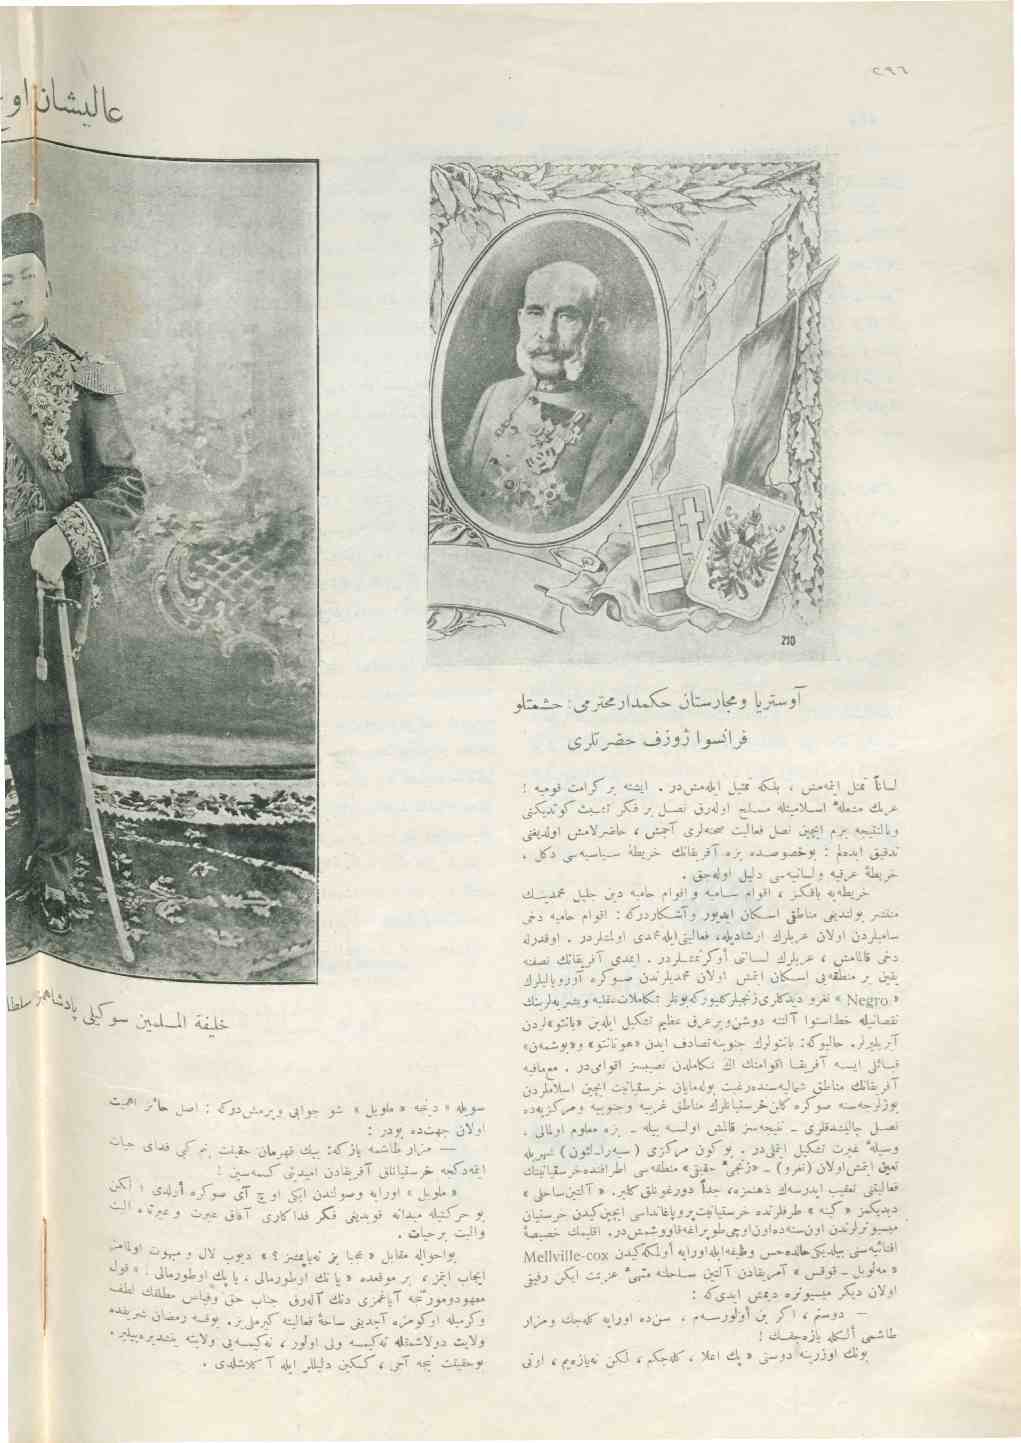 ٢٩٦
عاليشان او
210
آوستريا ومجارستان حكمدار محترمى : حشمتلو
فرانسوا ژوزف حضرتلرى
خليفة المسلمين سوكيلى پادشاهمز سلطا
لساناً تمثل ايتمه‌مش ، بلكه تمثيل ايله‌مش‌در . ايشته بر كرامت قوميه !
عربك مشعلهٔ اسلاميتله مسلح اوله‌رق نصل بر فكر تشبث كوتديكنى
وبالنتيجه بزم ايچين نصل فعاليت صحنه‌لرى آچمش ، حاضرلامش اولديغنى
تدقيق ايده‌لم : بوخصوصده بزه آفريقانك خريطهٔ سياسيه‌سى دكل ،
خريطهٔ عرقيه ولسانيه‌سى دليل اوله‌جق .
خريطه‌يه باقكز ، اقوام ساميه و اقوام حاميه دين جليل محمدينك
منتشر بولنديغى مناطقى اسكان ايديور وآشكاردركه : اقوام حاميه دخى
ساميلردن اولان عربلرك ارشاديله، فعاليتى‌ايله محمدى اولمشلردر . اوقدرله
دخى قالمامش ، عربلرك لسانى أوكرنمشلردر . ايمدى آفريقانك نصفنه
يقين بر منطقه‌يى اسكان ايتمش اولان محمديلردن صوكره آوروپاليلرك
« Negro » نغرو ديدكلرى زنجيلر كليوركه بونلر تكاملات عقليه وبشريه‌لرينك
نقصانيله خط استوا آلتنه دوشن وبرعرق عظيم تشكيل ايله‌ين «بانتو»لردن
آيريليرلر. حالبوكه: بانتولرك جنوبنه تصادف ايدن «هوتانتو» و«بوشمه‌ن»
قبائلى ايسه آفريقا اقوامنك اك تكاملدن نصيبسز اقوامى‌در . مع‌مافيه
آفريقانك مناطق شماليه‌سنده رغبت بوله‌مايان خرستيانيت ايچين اسلاملردن
بوزلرجه سنه صوكره كلن خرستيانلرك مناطق غربيه وجنوبيه ومركزيه‌ده
نصل چاليشدقلرى - نتيجه‌سز قالمش اولسه بيله - بزه معلوم اولمالى ،
وسيلهٔ غيرت تشكيل ايتملى‌در . بو كون مركزى (سيه‌را-لئون) شهريله
تعين ايتمش اولان (نغرو) - «زنجىٔ حقيقى» منطقه‌سى اطرافنده خرستيانيتك
فعاليتنى تعقيب ايدرسه‌ك ذهنمزه، جداً دورغونلق كلير. « آلتين ساحلى »
ديديكمز « كينه » طرفلرنده خرستيانيت پروپاغانداسى ايچين كيدن خرستيان
ميسيونرلرندن اون سنه‌ده اون اوچى طوپراغه قاووشمش‌در. اقليمك خصيصهٔ
افنائيه‌سنى بيلديكى حالده حس وظيفه ايله اورايه أولمكه كيدن Mellville-cox
« مه‌لويل - قوقس » آمريقادن آلتين ساحلنه متهىٔ عزيمت ايكن رفيقى
اولان ديكر ميسيونره ديمش ايدى‌كه :
— دوستم ، اكر بن أولورسه‌م ، سن‌ده اورايه كله‌جك ومزار
طاشمى ألكله يازه‌جقسك !
بونك اوزرينه دوستى « پك اعلا ، كله‌جكم ، لكن نه‌يازه‌يم ، اونى
سويله » ديينجه « ملويل » شو جوابى ويرمش‌دركه : اصل حائز اهميت
اولان جهت‌ده بودر :
— مزار طاشمه يازكه: بيك قهرمان حقيقت بنم كبى فداى حيات
ايتمه‌دكجه خرستيانلق آفريقادن اميدنى كسمه‌سين !
« ملويل » اورايه وصولندن ايكى اوچ آى صوكره أولدى ؛ لكن
بو حركتيله ميدانه قويديغى فكر فداكارى آفاق غيرت وعبرتاً الت
والبت برحيات .
بواحواله مقابل « عجبا بز نه‌ياپمشز ؟ » دييوب لال ومبهوت اولمامز
ايجاب ايتمز ، بر موقعده « يا تك اوطورمالى ، يا پك اوطورمالى ! » قول
معهودومورثنجه آياغمزى دنك آله‌رق جناب حق وفياض مطلقك لطف
وكرميله اوكومزه آچديغى ساحهٔ فعاليته كيرملى‌يز. بوقسه رمضان شريفده
ولايت دولاشمقله نه‌كيمسه ولى اولور ، نه‌كيمسه‌يى ولايته يتشديره‌بيلير.
بوحقيقت نيجه آجى ، كسكين دليللر ايله آكلاشلدى .